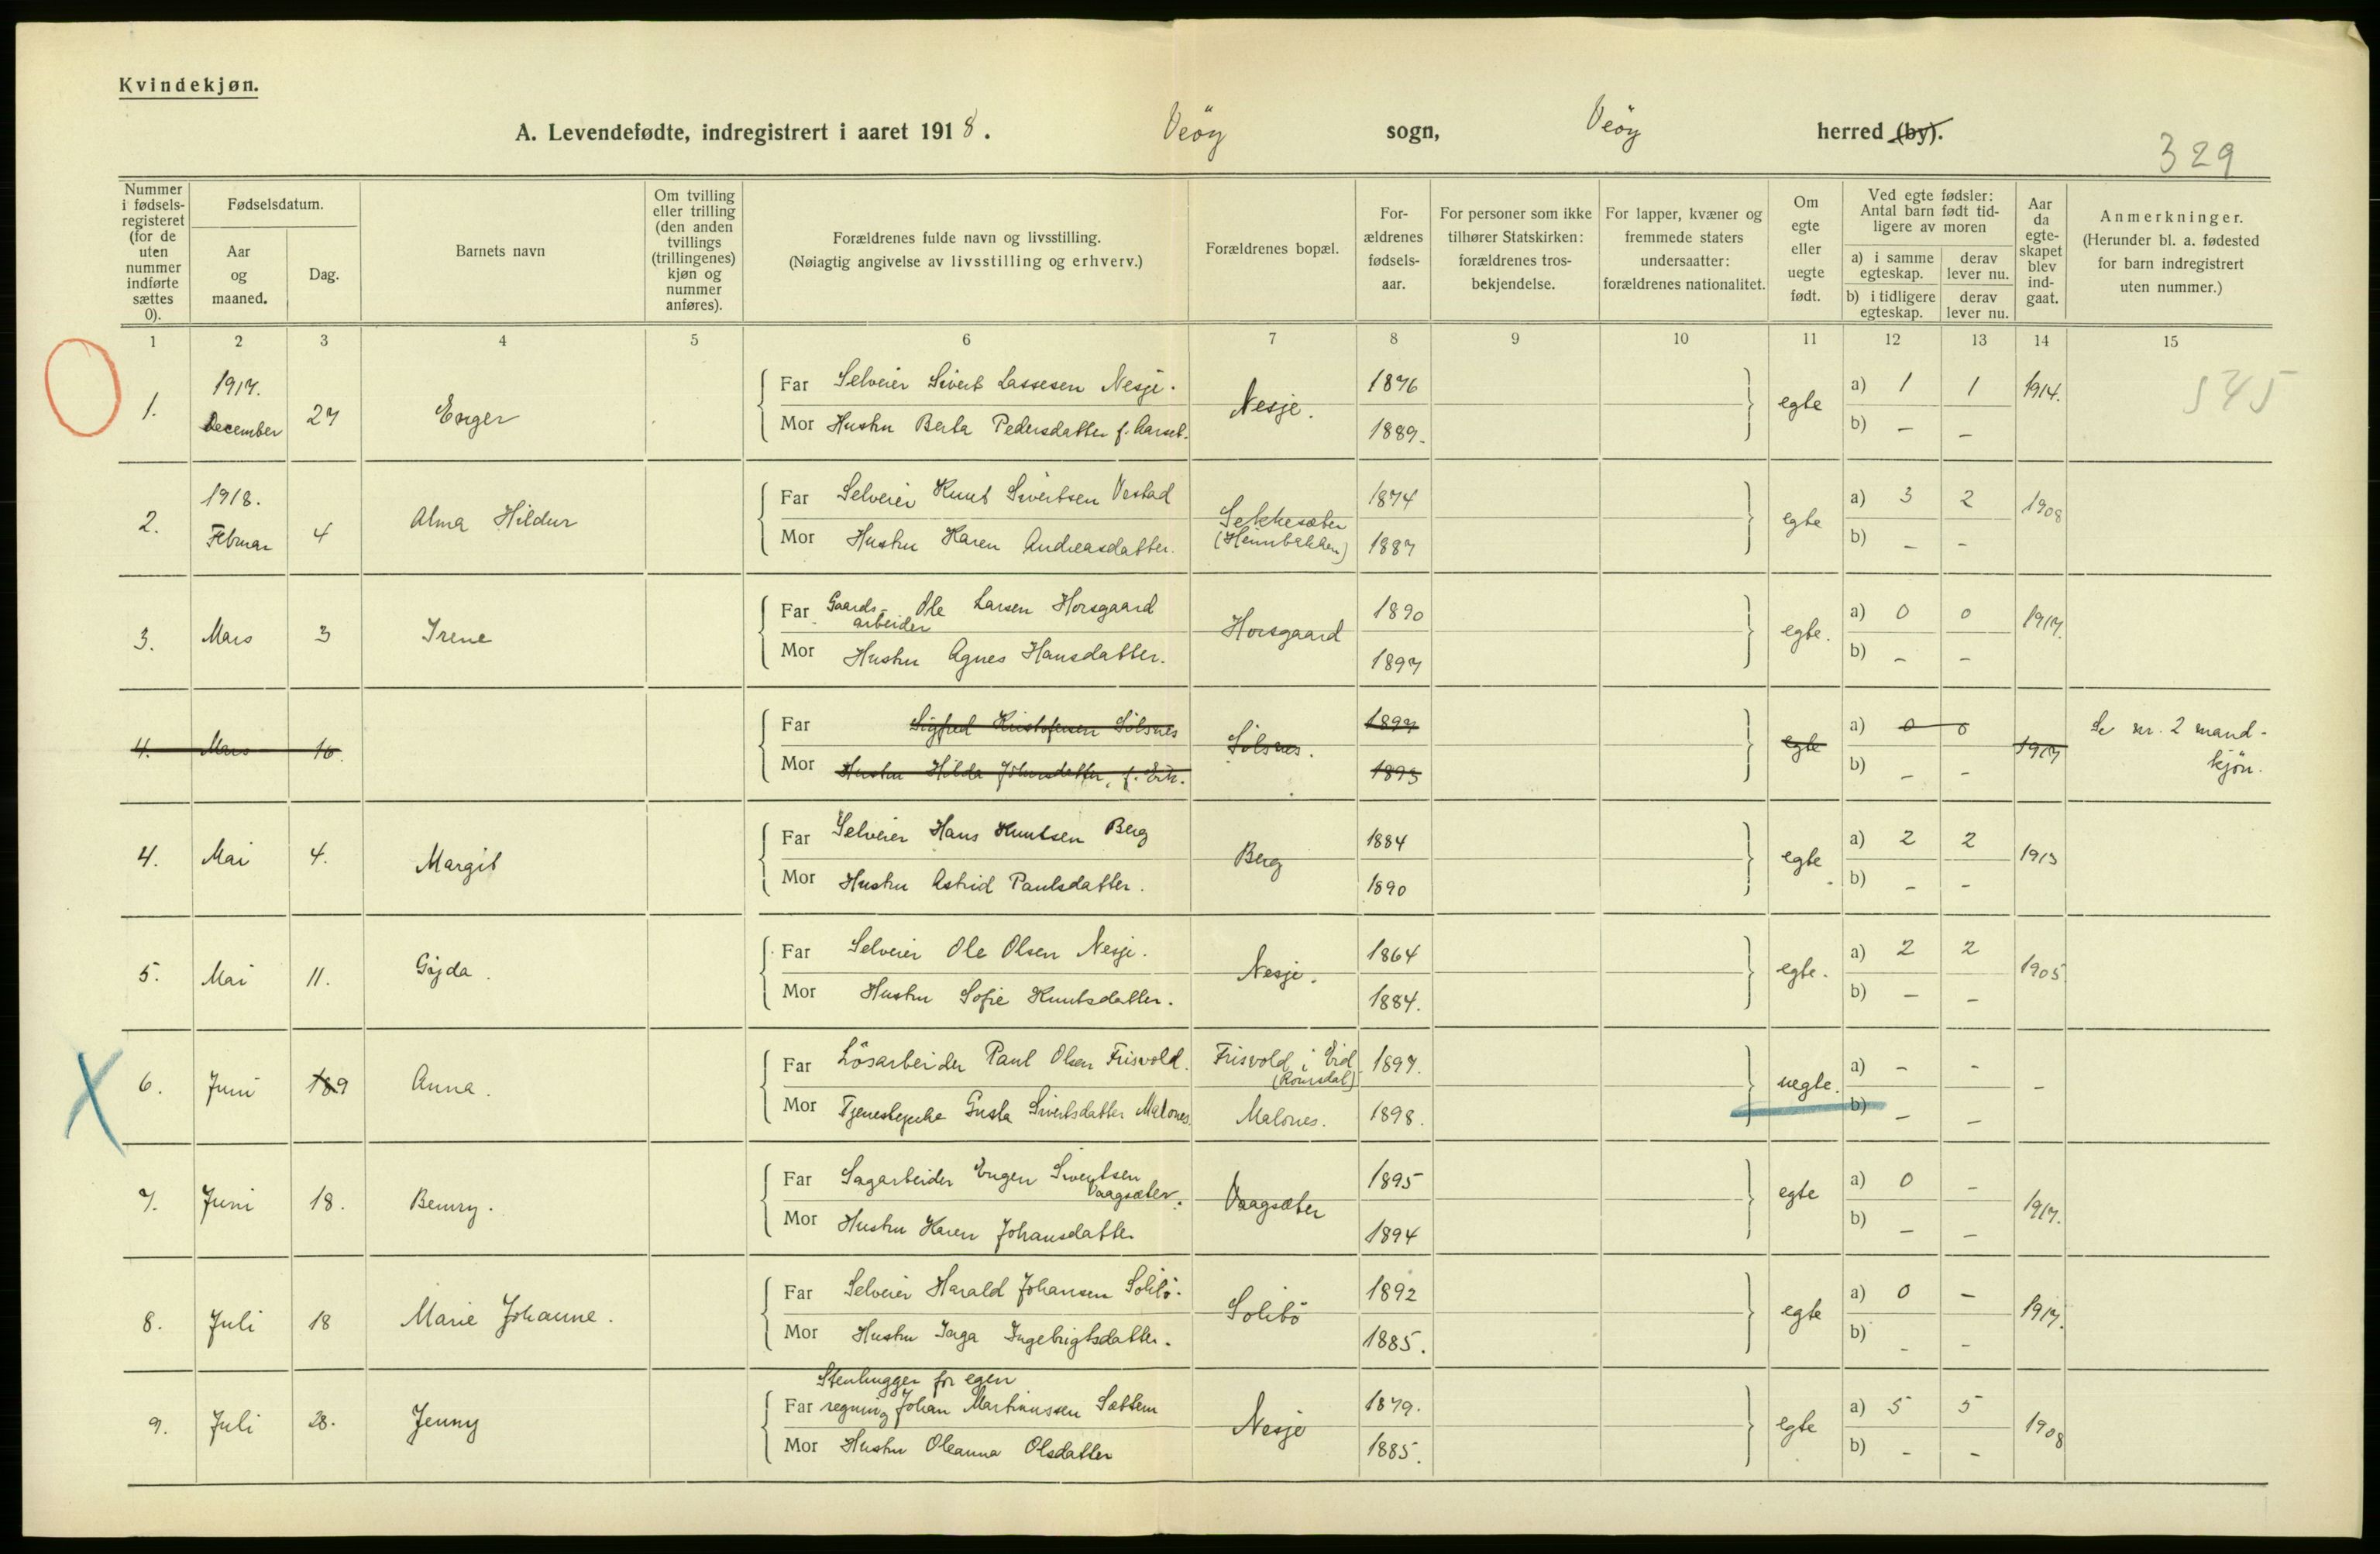 Kvindekjøn.
A. Levendefødte, indregistrert i aaret 1918. Veöy sogn, Veöy herred (by).
329
Nummer i fødsels-registeret (for de uten nummer indførte sættes 0).
Fødselsdatum.
Aar og maaned.
Dag.
Barnets navn
Om tvilling eller trilling (den anden tvillings (trillingenes) kjøn og nummer anføres).
Forældrenes fulde navn og livsstilling.
(Nøiagtig angivelse av livsstilling og erhverv.)
Forældrenes bopæl.
For-ældrenes fødsels-aar.
For personer som ikke tilhører Statskirken: forældrenes tros-bekjendelse.
For lapper, kvæner og fremmede staters undersaatter: forældrenes nationalitet.
Om egte eller uegte født.
Ved egte fødsler: Antal barn født tid-ligere av moren
a) i samme egteskap. derav lever nu.
b) i tidligere egteskap. derav lever nu.
Aar da egte-skapet blev ind-gaat.
Anmerkninger.
(Herunder bl. a. fødested for barn indregistrert uten nummer.)
1 2 3 4 5 6 7 8 9 10 11 12 13 14 15
1. 1917. December 27 Enger
Far Selveier Sivert Lassesen Nesje. Nesje. 1876 egte a) 1 1 1914.
Mor Hustru Berta Pedersdatter f. Aarset. 1889. b) – –
545
2. 1918. Februar 4 Alma Hildur
Far Selveier Knut Sivertsen Vestad Sekkesæter 1874 egte a) 3 2 1908
Mor Hustru Karen Andreasdatter. (Heimbakken) 1887 b) – –
3. Mars 3 Irene
Far Gaards-arbeider Ole Larsen Horsgaard Horsgaard 1890 egte. a) 0 0 1917.
Mor Hustru Agnes Hansdatter. 1897 b) – –
4. Mars 16.
Far Sigfred Kristofersen Sölsnes Sölsnes. 1897 egte a) 0 0 1917 Se nr. 2 mand-
Mor Hustru Hilda Johnsdatter, f. 1893 b) – – kjön.
4. Mai 4. Margit
Far Selveier Hans Knutsen Berg Berg 1884 egte a) 2 2 1913
Mor Hustru Astrid Paulsdatter. 1890 b) – –
5. Mai 11. Gyda.
Far Selveier Ole Olsen Nesje. Nesje. 1864 egte. a) 2 2 1905
Mor Hustru Sofie Knutsdatter. 1884. b) – –
6. Juni 9 Anna.
Far Lösarbeider Paul Olsen Frisvold. Frisvold i Eid (Romsdal) 1897. uegte. a) – – –
Mor Tjenestepike Gusta Sivertsdatter Malones Malones. 1898. b) – –
7. Juni 18. Benny.
Far Sagarbeider Eugen Sivertsen Vaagsæter. Vaagsæter 1895 egte a) 0 – 1917.
Mor Hustru Karen Johansdatter 1894 b) – –
8. Juli 18 Marie Johanne.
Far Selveier Harald Johansen Solibö. Solibö 1892 egte a) 0 – 1917.
Mor Hustru Inga Ingebrigtsdatter. 1885. b) – –
9. Juli 28. Jenny
Stenhugger for egen
Far regning Johan Martinussen Sættem Nesje 1879. egte a) 5 5 1908
Mor Hustru Oleanna Olsdatter 1885. b) – –